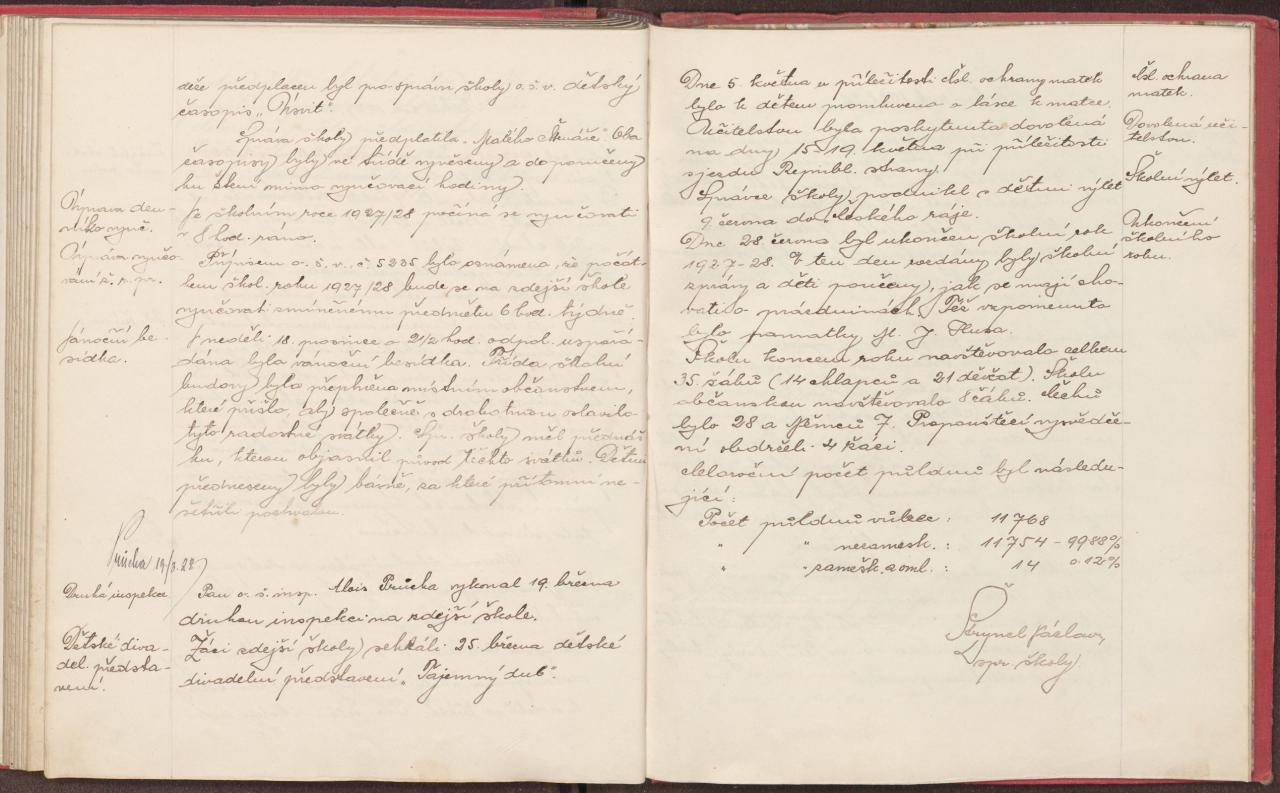 děže předplacen byl pro správu školy o. š. v. dětský
časopis „Úsvit".
Správa školy předplatila „Malého čtenáře". Oba
časopisy byly ve třídě vyvěšeny a doporučeny
ku čtení mimo vyučovací hodiny.
Úprava den-
ního vyuč.
Ve školním roce 1927/28 počíná se vyučovati
v 8 hod. ráno.
Úprava vyučo-
vání ž. r. pr.
Přípisem o. š. v., č. 5235 bylo oznámeno, že počát-
kem škol. roku 1927/28 bude se na zdejší škole
vyučovat zmíněnému předmětu 6 hod. týdně.
Vánoční be-
sídka.
V neděli 18. prosince o 2 1/2 hod. odpol. uspořá-
dána byla vánoční besídka. Třída školní
budovy byla přeplněna místním občanstvem,
které přišlo, aby společně s drobotinou oslavilo
tyto radostné svátky. Spr. školy měl přednáš-
ku, kterou objasnil původ těchto svátků. Dětmi
předneseny byly básně, za které přítomní ne-
šetřili pochvalou.
Průcha 19/3. 28
Druhá inspekce
Pan o. š. insp. Alois Průcha vykonal 19. března
druhou inspekci na zdejší škole.
Dětské diva-
del. předsta-
vení.
Žáci zdejší školy sehráli 25. března dětské
divadelní představení „Tajemný dub".
Dne 5. května u příležitosti čsl. ochrany matek
bylo k dětem promluveno o lásce k matce.
Čsl. ochrana
matek.
Učitelstvu byla poskytnuta dovolená
na dny 15.-19. května při příležitosti
sjezdu Republ. strany.
Dovolená uči-
telstvu.
Správce školy podnikl s dětmi výlet
9. června do Českého ráje.
Školní výlet.
Dne 28 června byl ukončen školní rok
1927-28. V ten den rozdány byly školní
zprávy a děti poučeny, jak se mají cho-
vati o prázdninách. Též vzpomenuto
bylo památky M. J. Husa.
Ukončení
školního
roku.
Školu koncem roku navštěvovalo celkem
35 žáků (14 chlapců a 21 děvčat). Školu
občanskou navštěvovalo 8 žáků. Čechů
bylo 28 a Němců 7. Propouštěcí vysvědče-
ní obdrželi 4 žáci.
Celoroční počet půldnů byl následu-
jící:
Počet půldnů vůbec: 11768
" " nezamešk.: 11754 - 99.88%
" " zamešk. oml.: 14 0.12%
Václav,
spr. školy.